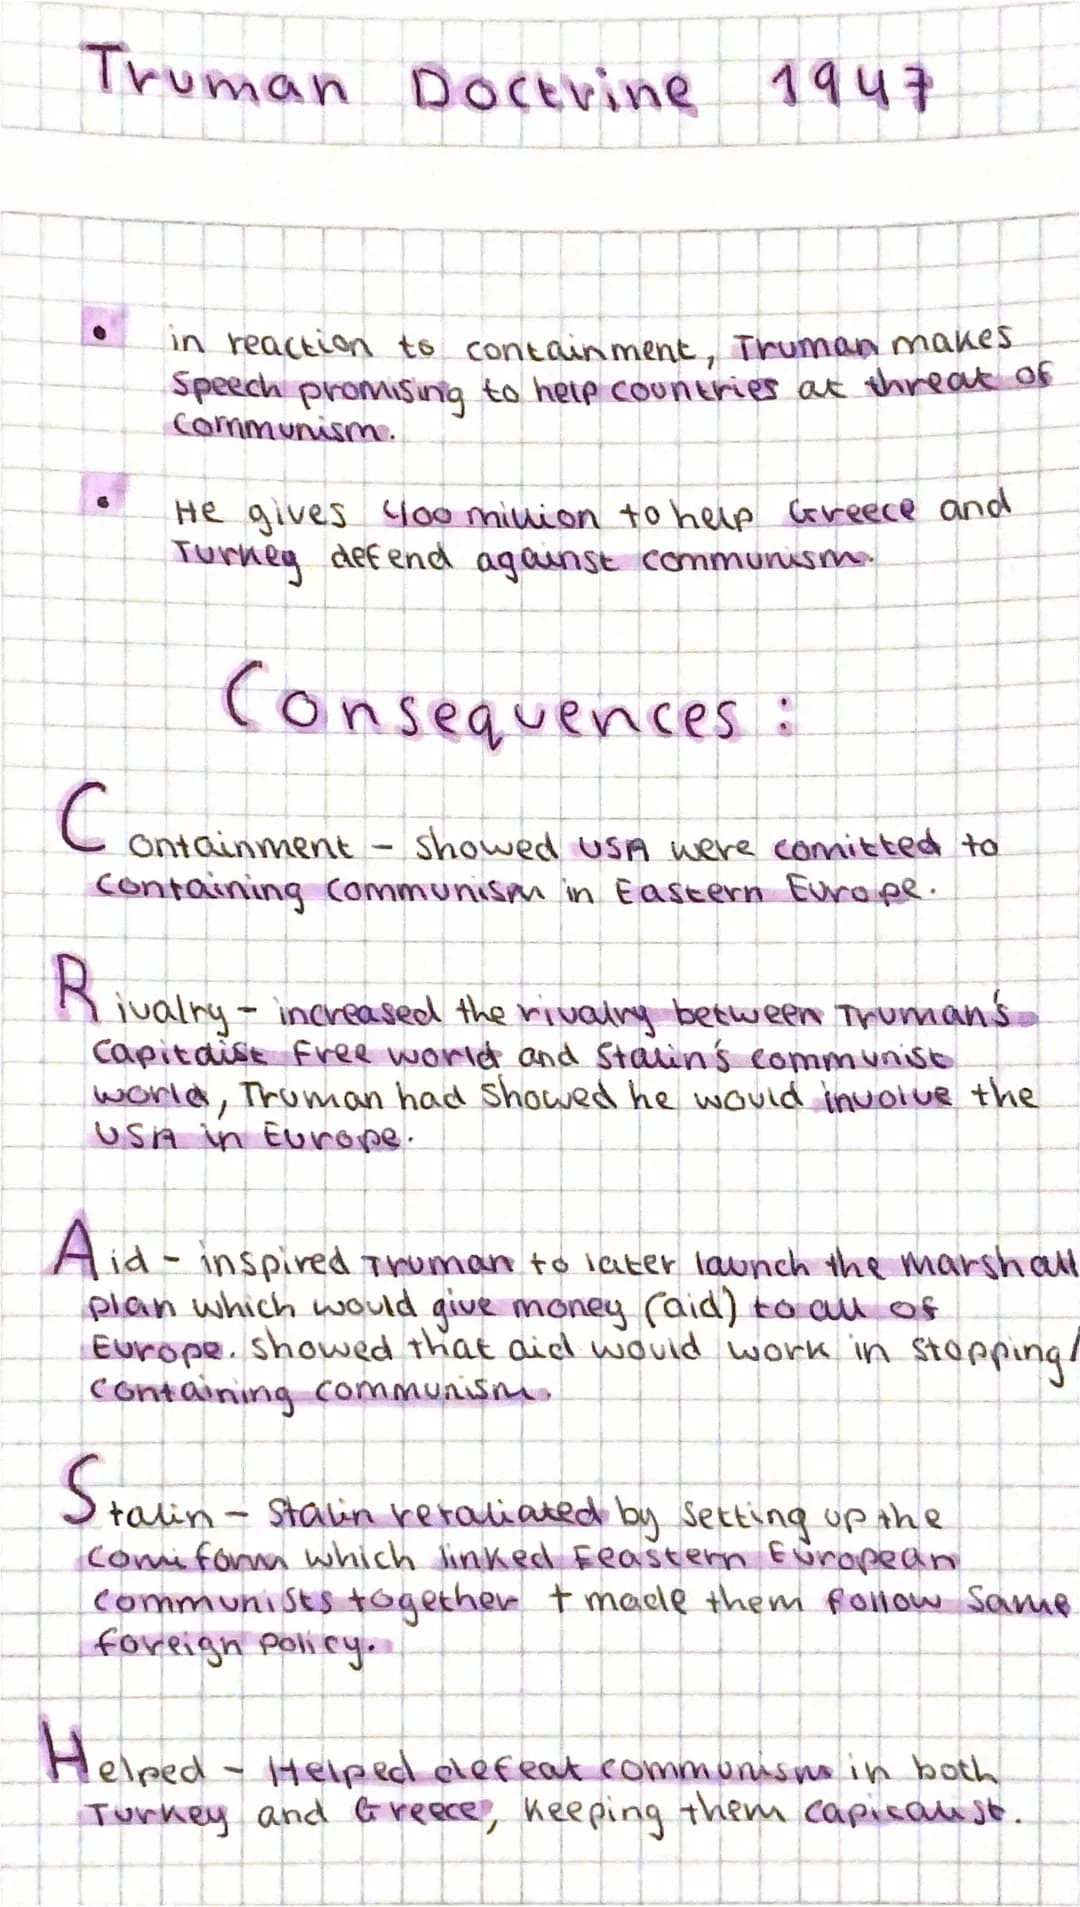 Truman Doctrine 1947
• in reaction to containment, Truman makes
Speech promising to help countries at threat of
Communism.
• He gives 400 million to help Greece and
Turkey defend against communism.
Consequences :
Containment - showed USA were comitted to
containing communism in Eastern Europe.
Rivalry - increased the rivalry between Truman's
Capitalist free world and Stalin's communist
world, Truman had showed he would involve the
USA in Europe.
Aid - inspired Truman to later launch the Marshall
plan which would give money (aid) to all of
Europe. showed that aid would work in stopping/
containing communism.
Stalin - Stalin retaliated by setting up the
Comiform which linked Eeastern European
Communists together + made them follow same
foreign policy.
Helped - Helped defeat communism in both
Turkey and Greece, keeping them capitalist.